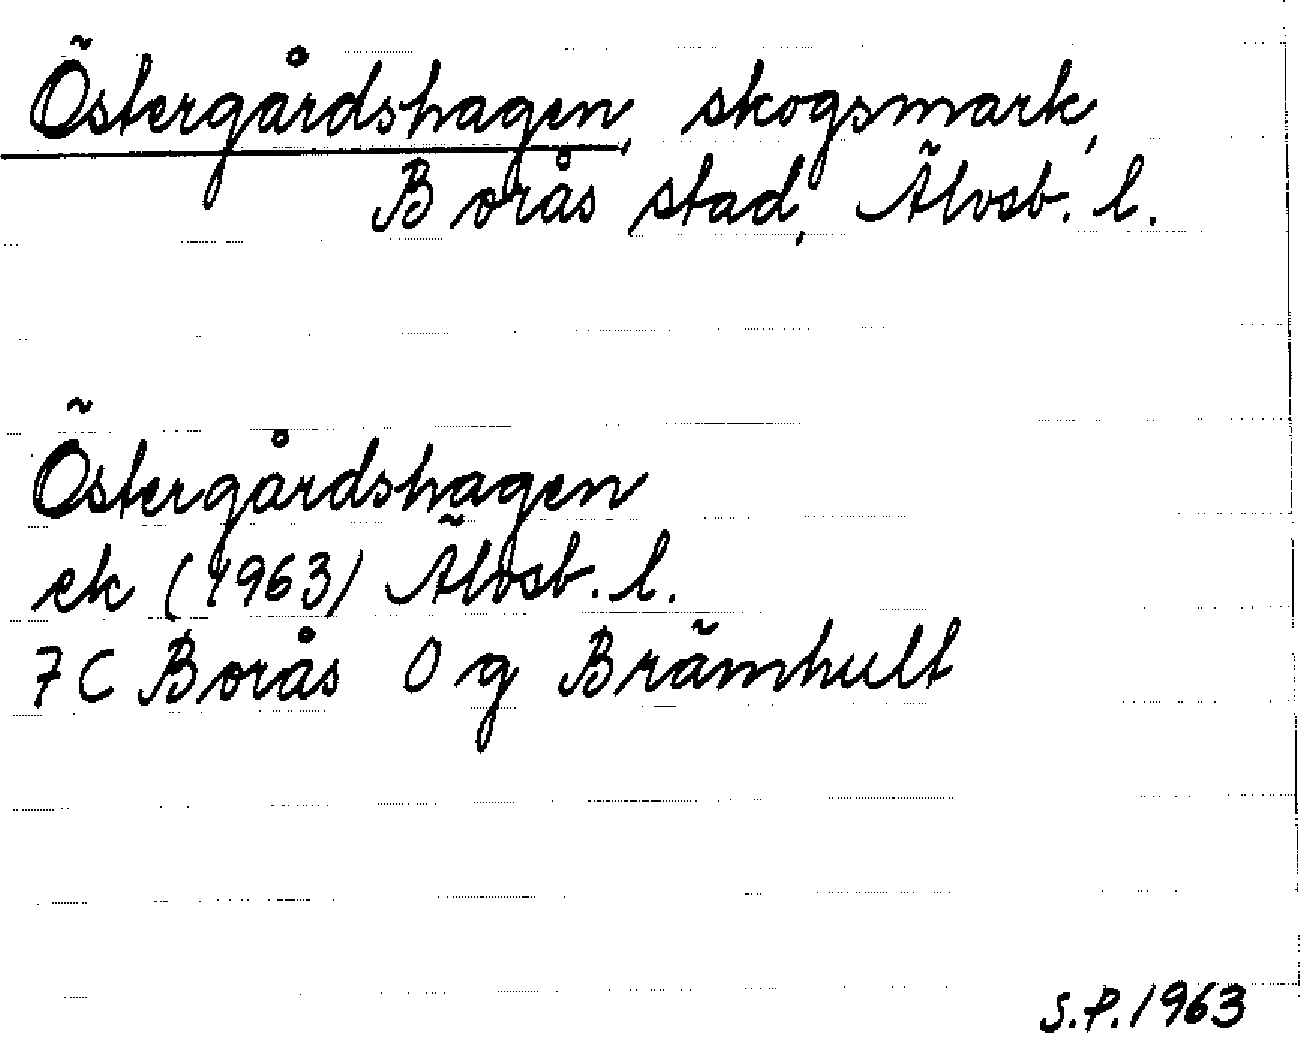 Östergårdshagen, skogsmark,
Borås stad, Älvsb. l.
Östergårdshagen
ek (1963) Älvsb. l.
7C Borås O g Brämhult
S.P. 1963